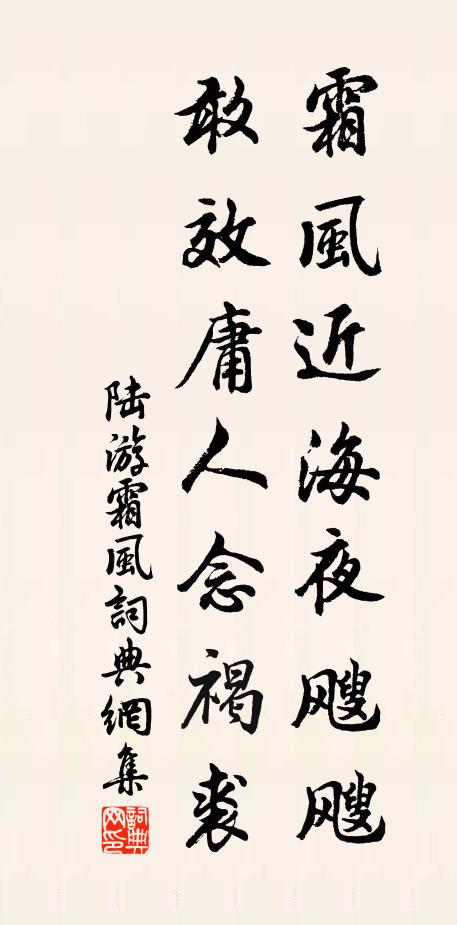 霜風近海夜飕飕
敢效庸人念褐裘
陆游霜風詞典網集
詞典網印